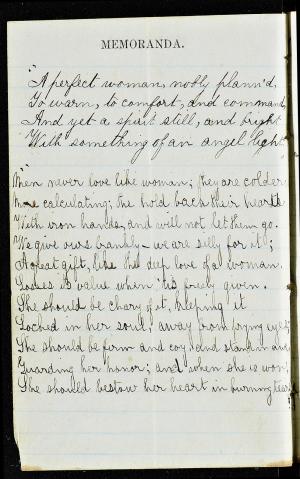 MEMORANDA.
"A perfect woman, nobly plann'd,
To warn, to comfort, and command,
And yet a spirit still, and bright
With something of an angel light."
"Men never love like woman; they are colder
More calculating; the hold back their hearts
With iron hands, and will not let them go.
We give ours frankly – we are silly for it;
A great gift, like the deep love of a woman.
Looses its value when 'tis freely given.
She should be chary of it, keeping it
Locked in her soul, away from prying eyes;
She should be firm and coy, and stand in
Guarding her honor; and when she is won,
She should bestow her heart in burning tears